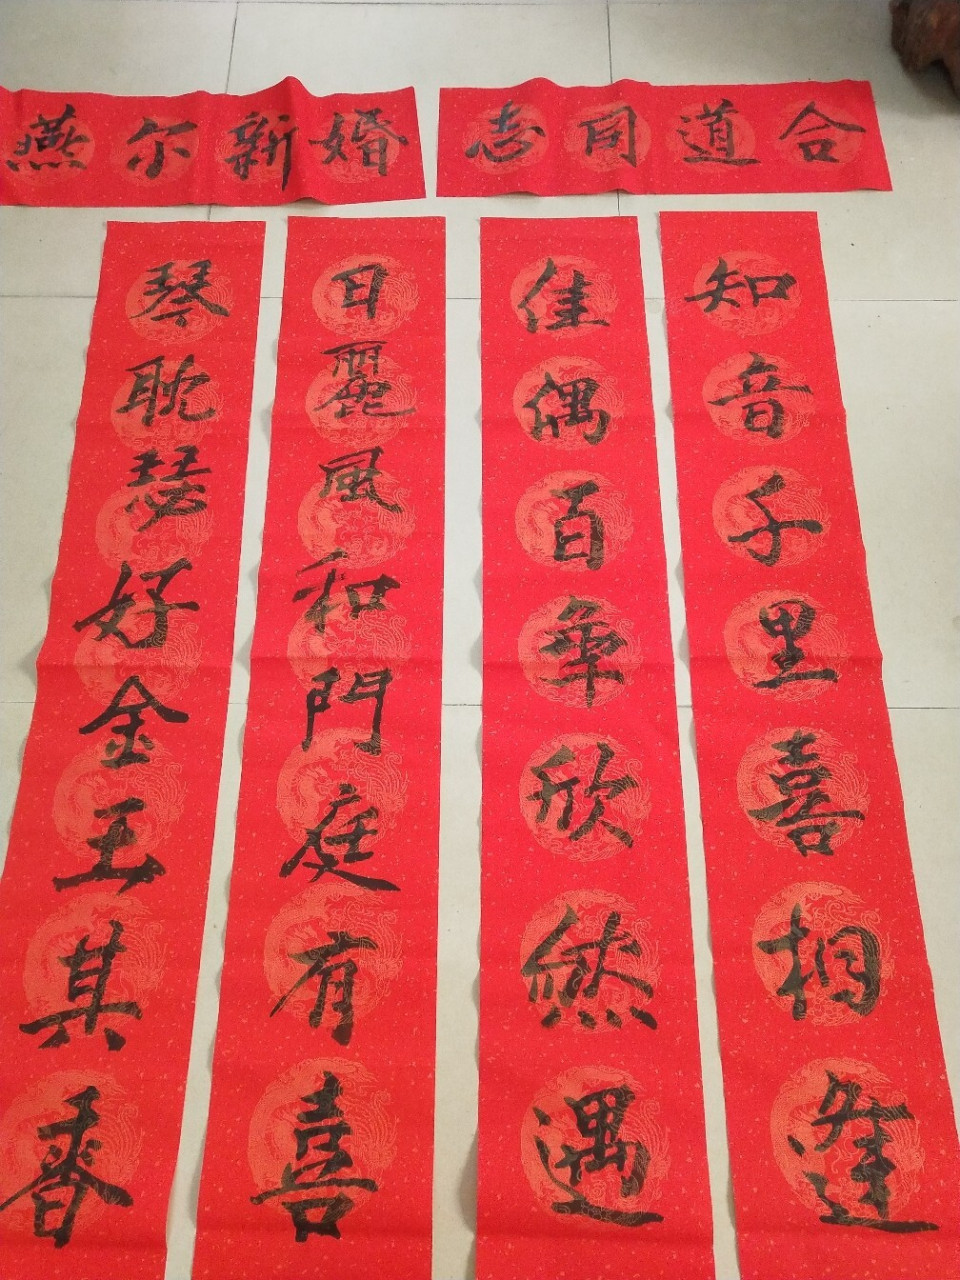 燕尔新婚
志同道合
琴耽瑟好金玉其香
日麗風和門庭有喜
佳偶百年欣然遇
知音千里喜相逢